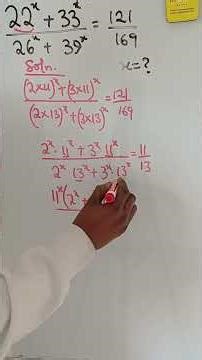 22^x + 33^x / 26^x + 39^x = 121/169
x = ?
Soln.
(2x11)^x + (3x11)^x / (2x13)^x + (3x13)^x = 121/169
2^x · 11^x + 3^x · 11^x / 2^x · 13^x + 3^x · 13^x = 11/13
11^x(2^x +